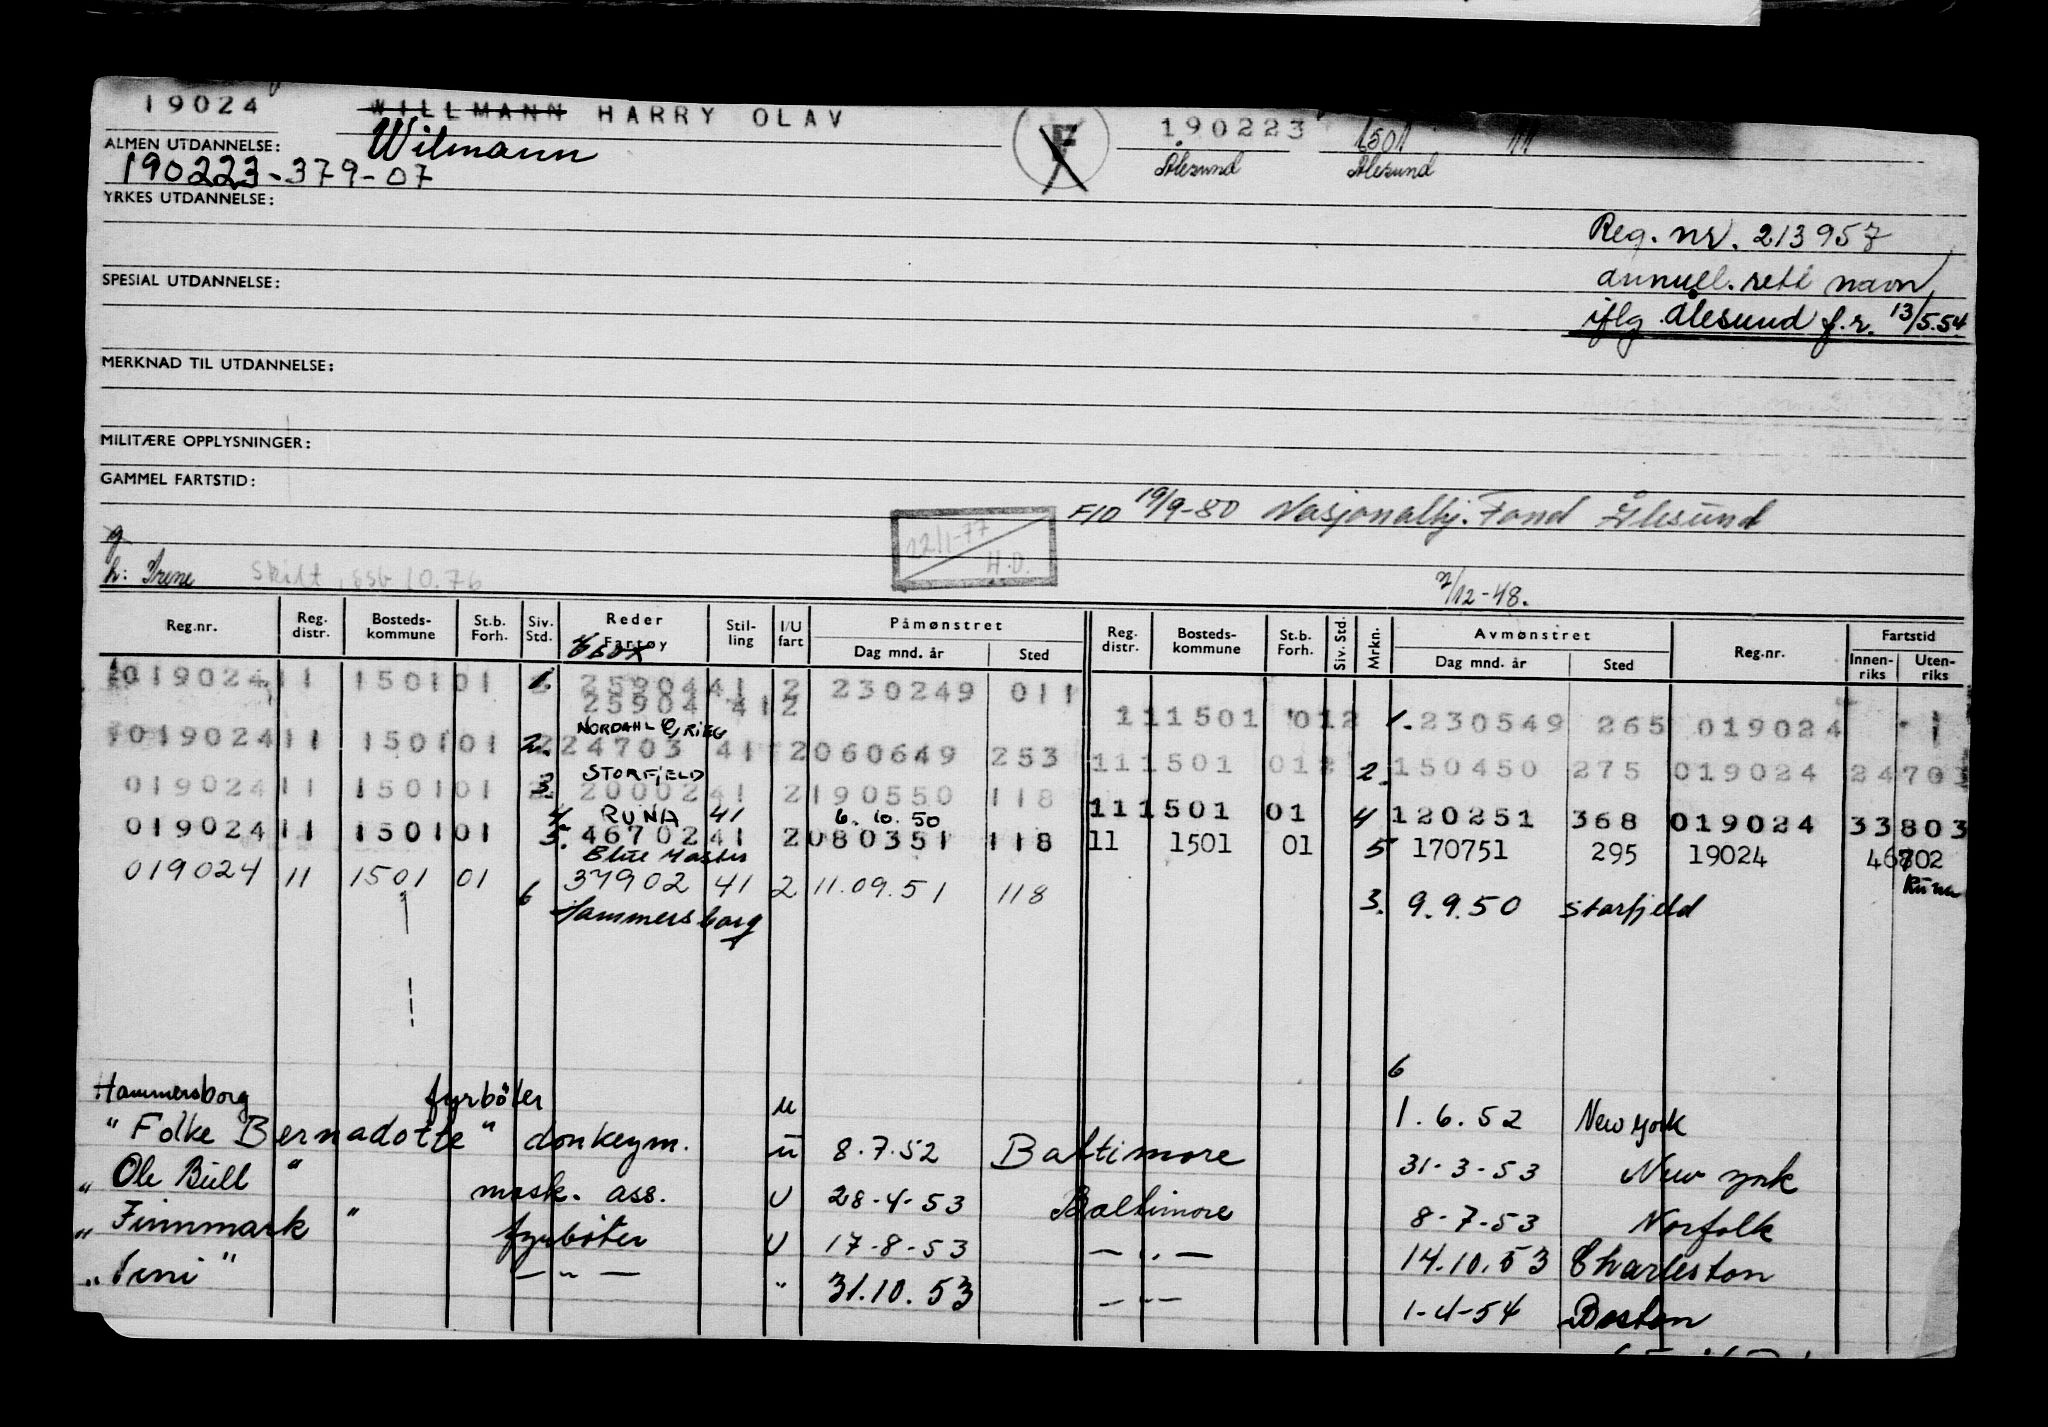 19024 WILLMANN HARRY OLAV 190223 1501
ALMEN UTDANNELSE: Wilmann Ålesund Ålesund
190223-379-07
YRKES UTDANNELSE:
Reg. nr. 213957
SPESIAL UTDANNELSE: annull. rett navn
iflg Ålesund f.r. 13/5.54
MERKNAD TIL UTDANNELSE:
MILITÆRE OPPLYSNINGER:
GAMMEL FARTSTID:
FID 19/9-80 Nasjonalhj. Fond Ålesund
12/1-77
H.D.
g
h: Irene skilt, ssb 10.76
7/12-48.
Reg.nr. Reg. distr. Bosteds-kommune St.b. Forh. Siv. Std. Reder Fartøy Stil-ling I/U fart Påmønstret Dag mnd. år Sted Reg. distr. Bosteds-kommune St.b. Forh. Siv. Std. Mrkn. Avmønstret Dag mnd. år Sted Reg.nr. Fartstid Innen-riks Uten-riks
019024 11 1501 01 1. 25904 41 2 230249 011
25904 41 2
111501 012 1. 230549 265 019024 1
NORDAHL GRIEG
019024 11 1501 01 2. 24703 41 2 060649 253 111501 01 2. 150450 275 019024 24703
STORFJELD
019024 11 1501 01 3. 20002 41 2 190550 118
4 RUNA 41 6.10.50 111501 01 4 120251 368 019024 33803
019024 11 1501 01 5. 46702 41 2 080351 118 11 1501 01 5 170751 295 19024 46702
Runa
019024 11 1501 01 6 37902 41 2 11.09.51 118 3. 9.9.50 Storfjeld
Hammersborg
6
Hammersborg fyrbøter u 1.6.52 New York
"Folke Bernadotte" donkeym. u 8.7.52 Baltimore 31-3-53 New York
"Ole Bull" mask. ass. U 28-4-53 Baltimore 8-7-53 Norfolk
"Finnmark" fyrbøter U 17-8-53 — " — 14.10.53 Charleston
"Vini" — " — " 31.10.53 — " — 1-4-54 Boston